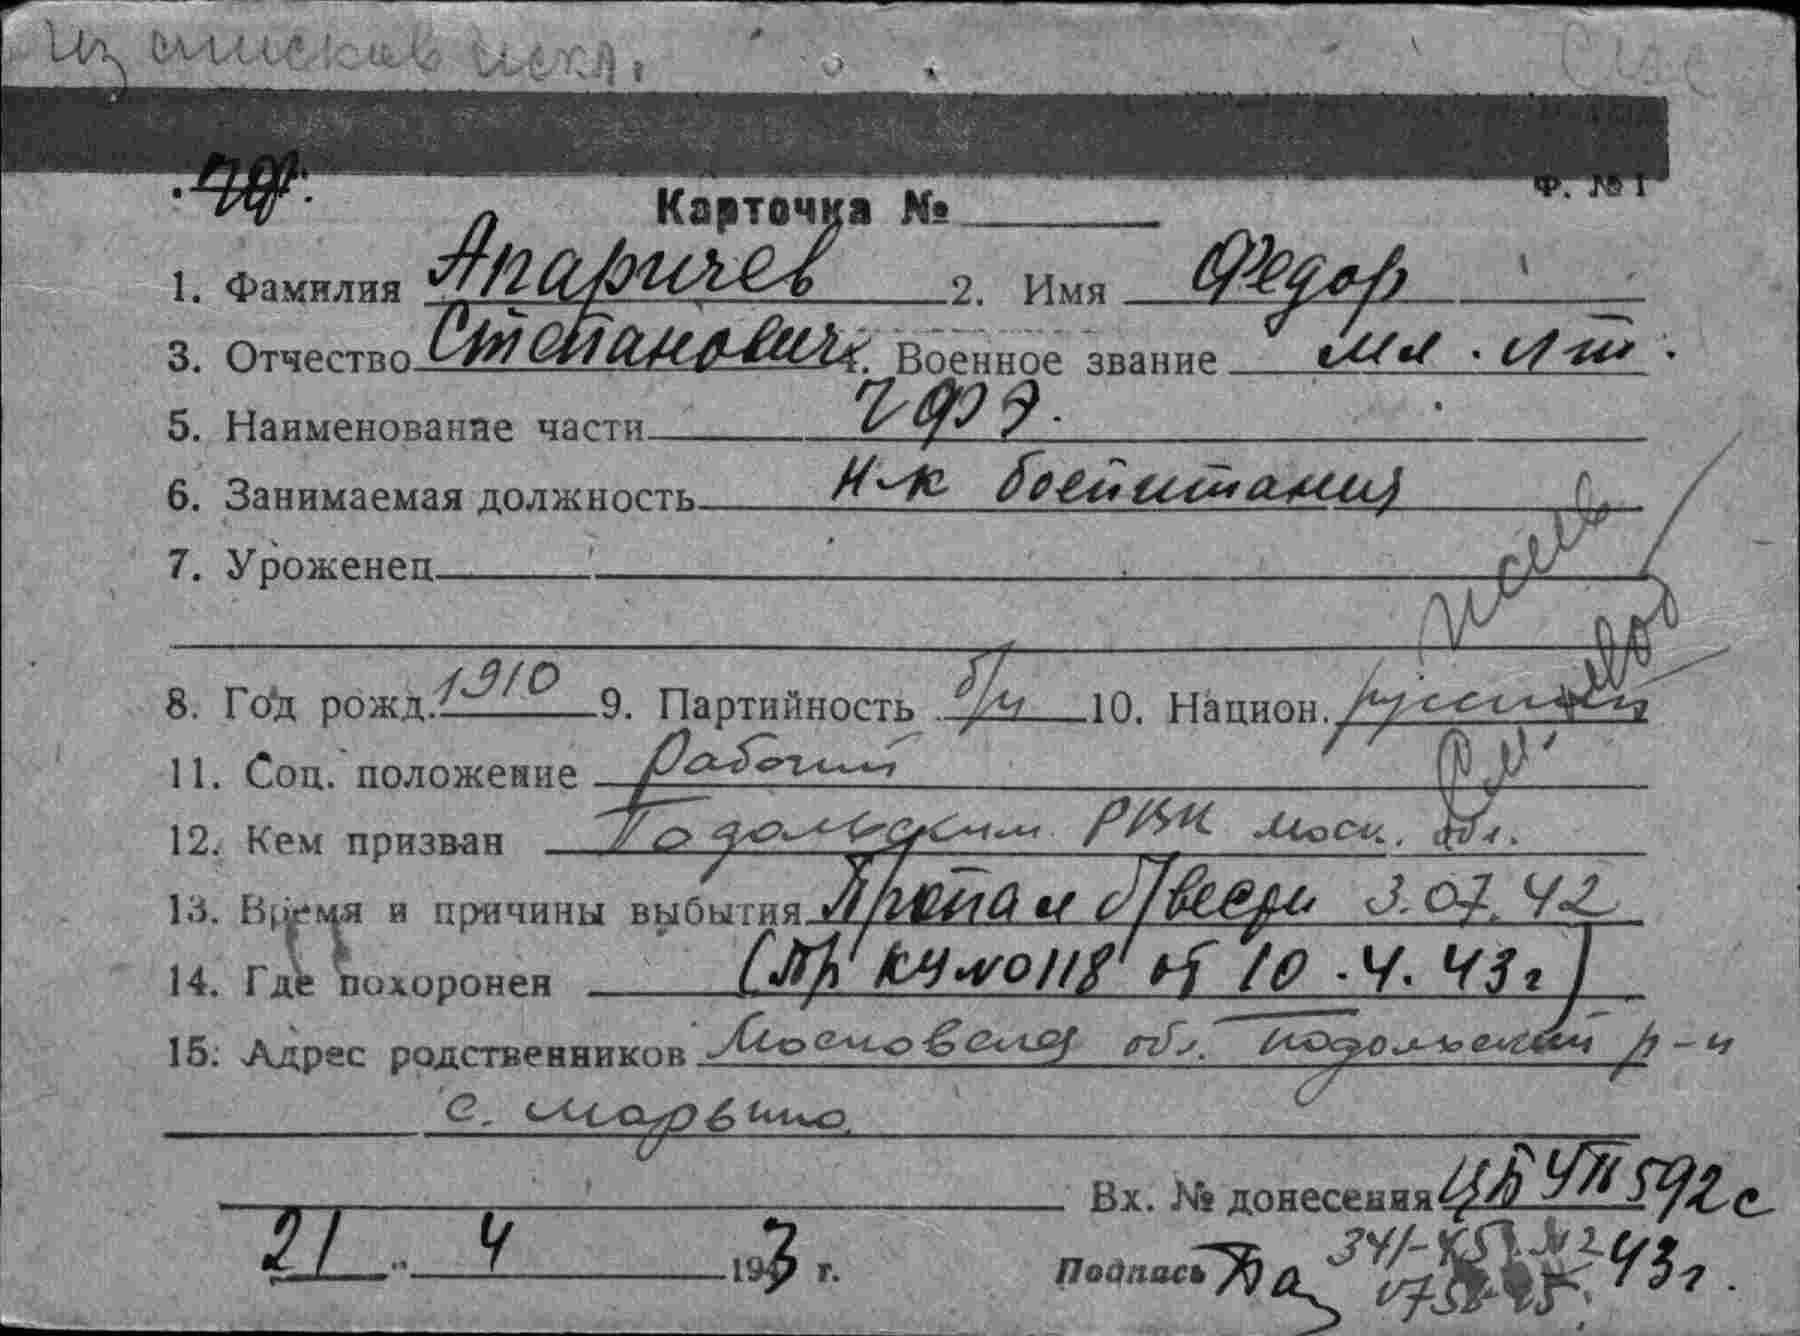 Из списков искл.
Ф. № 1
Карточка №
1. Фамилия Апаричев 2. Имя Федор
3. Отчество Степанович 4. Военное звание мл. лт.
5. Наименование части ЧФЭ.
6. Занимаемая должность Н-к боепитания
7. Уроженец
8. Год рожд. 1910 9. Партийность б/п 10. Национ. русский
11. Соц. положение Рабочий
12. Кем призван Подольским РВК моск. обл.
13. Время и причины выбытия Пропал б/вести 3.07.42
14. Где похоронен (Пр КЧ№0118 от 10.4.43г)
15. Адрес родственников Московская обл. Подольский р-н
с. Марьино.
Вх. № донесения ЦБ УП 592с
21 " 4 1943 г. Подпись 43г.